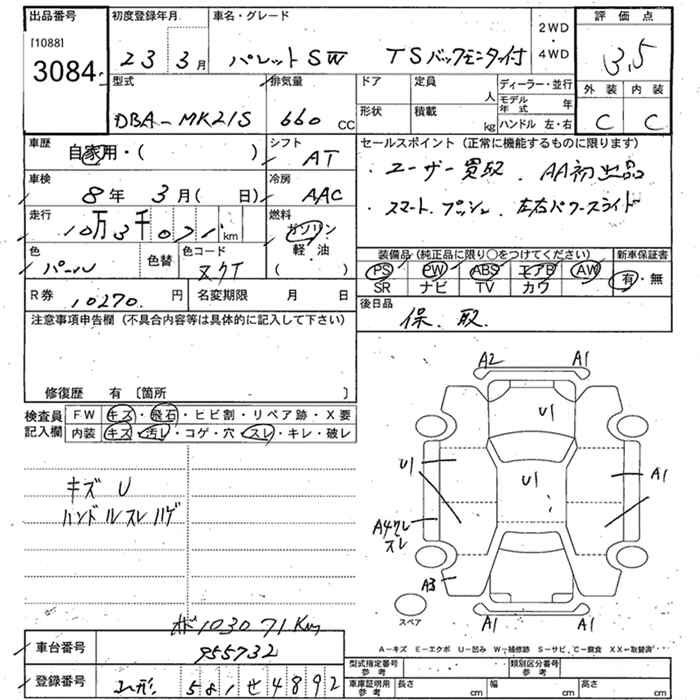 出品番号
[1088]
3084
初度登録年月
23 3月
車名・グレード
パレットSW TSバックモニター付
2WD
・
4WD
評価点
3.5
外装 内装
C C
型式
DBA-MK21S
排気量
660 CC
ドア
定員 人
形状
積載 kg
ディーラー・並行
モデル年式 年
ハンドル 左・右
車歴
自家用・( )
シフト
AT
セールスポイント(正常に機能するものに限ります)
・ユーザー買取. AA初出品
・スマート.プッシュ. 左右パワースライド
車検
8年 3月( 日)
冷房
AAC
走行
10万3千071km
燃料
ガソリン
・
軽・油
( )
色
パール
色替
色コード
装備品(純正品に限り○をつけてください)
PS PW ABS エアB AW
SR ナビ TV カワ
新車保証書
有・無
R券 10270. 円
名変期限 月 日
後日品
保. 取.
注意事項申告欄(不具合内容等は具体的に記入して下さい)
修復歴 有〔箇所 〕
検査員
記入欄
FW キズ・飛石・ヒビ割・リペア跡・X要
内装 キズ・汚レ・コゲ・穴・スレ・キレ・破レ
キズ U
ハンドルスレ ハゲ
103071Km
A2 A1
U1
U1 U1 A1
A4クレ
スレ
A3
A1 A1
スペア
A-キズ E-エクボ U-凹み W-補修跡 S-サビ C-腐食 XX-取替済
車台番号
955732
登録番号
山形 501 せ 4892
型式指定番号
参考
類別区分番号
参考
車庫証明用
参考
長さ cm
幅 cm
高さ cm